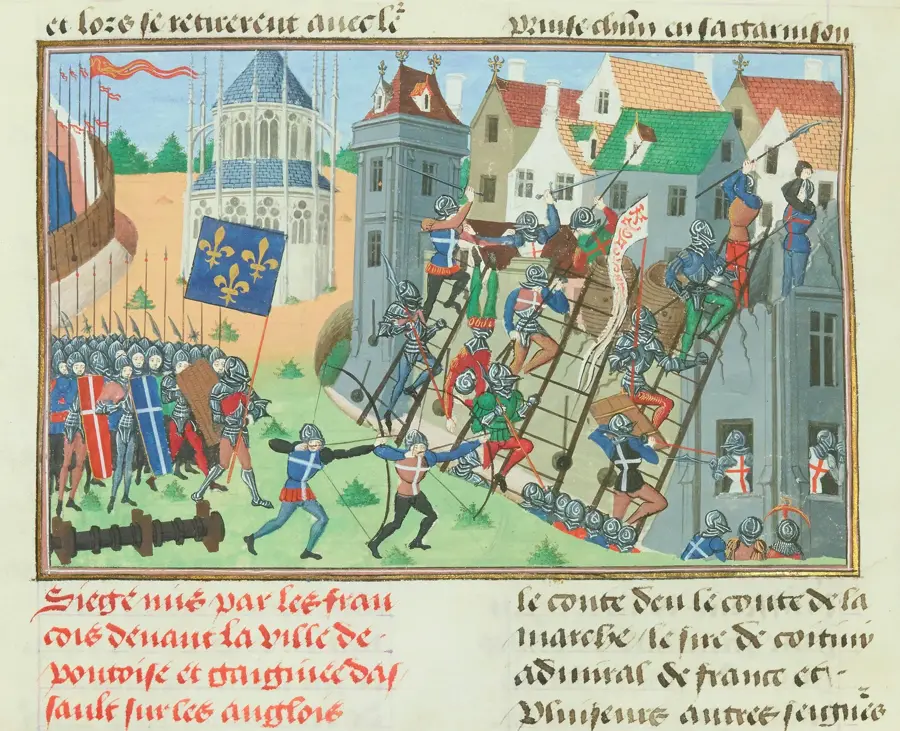 et lors se retirerent avec le
Prinse chun en sa garnison
Siege mis par les fran
cois devant la ville de
pontoise et gaignee das
sault sur les anglois
le conte deu le conte de la
marche / le sire de coitivy
admiral de france et
Plusieurs autres seigneurs